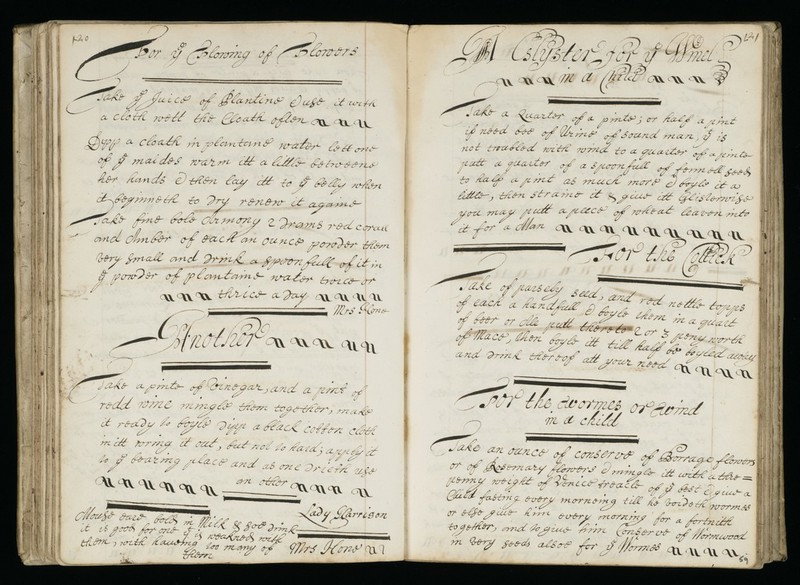 120
For ye Flowing of Flowers
Take ye Juice of Plantine & use it with
a cloth wett the Cloath often
Dypp a cloath in plantane water lett one
of ye maides warm itt a little betweene
her hands & then lay itt to ye belly when
it beginneth to Dry renew it againe
Take fine bole Armony 2 drams red corall
and Amber of each an ounce powder them
very small and drink a spoonfull of it in
ye powder of plantane water twice or
thrice a day
Mrs Hone
Another
Take a pinte of Vinegar, and a pint of
redd wine mingle them together, make
it ready to boyle Dypp a black cotten cloth
in itt wring it out, but not to hard, apply it
to ye bearing place and as one Drieth use
an other
Lady Garrison
Mouse eare boild in Milk & soe drink
it is good for one yt is weakned with
them, with haveing too many of
them
Mrs Hone
121
A Clyster for ye Wind
in a Child
Take a Quarter of a pinte; or half a pint
if need bee of Urine of sound man, yt is
not troubled with wind to a quarter of a pinte
putt a quarter of a spoonfull of fennell seed
to half a pint as much more & boyle it a
little, then straine it & give itt Glisterwise
you may putt a peece of wheat leaven into
it for a Man
For the Collick
Take of parsely seed, and red nettle topps
of each a handfull & boyle them in a quart
of beer or Alle putt thereto 2 or 3 peny worth
of Mace, then boyle itt till half be boyled away
and drink thereof att your need
For the wormes or wind
in a child
Take an ounce of conserve of Borrage flowers
or of Rosemary flowers & mingle itt with a thre=
penny weight of Venice treacle of ye best & give a
Child fasting every morneing till he voydeth wormes
or else give him every morning for a fortnitt
together, and to give him Conserve of Wormwood
in very seeds alsoe for ye Wormes
59